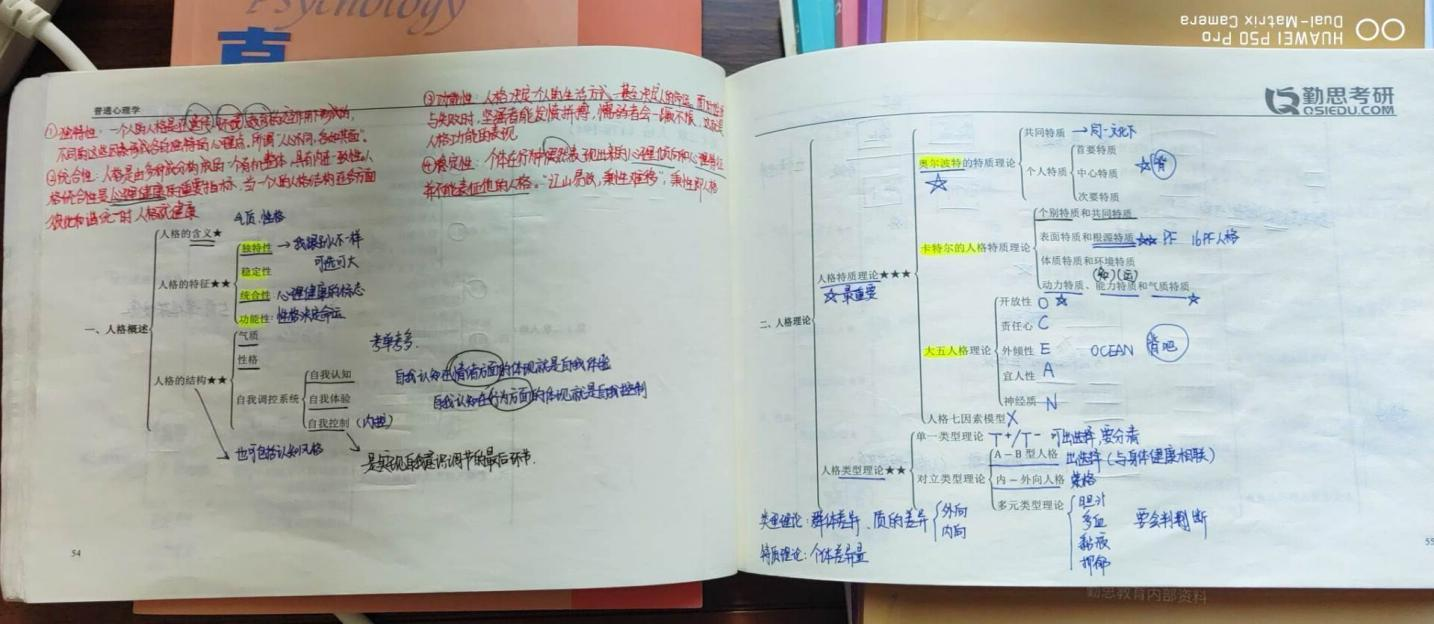 Psychology
HUAWEI P50 Pro
Dual-Matrix Camera
普通心理学
①独特性：一个人的人格是在遗传、环境、教育的交互作用下形成的，
不同的遗传
独特的心理点。所谓"人心不同，各如其面"。
②统合性：人格是由多种成分构成的一个有机整体，具有内在一致性，人
格统合性是心理健康的重要指标。当一个人的人格结构在各方面
彼此和谐统一时，人格就健康
③功能性：人格决定一个人的生活方式，甚至决定人的命运，面对挫折
与失败时，坚强者能发愤拼搏，懦弱者会一蹶不振，这就是
人格功能的表现
④稳定性：个体在行为中偶然表现出来的心理倾向和心理特征
并不能表征他的人格。"江山易改，秉性难移"，秉性即人格
气质、性格
一、人格概述
人格的含义★
人格的特征★★
独特性 → 我跟别人不一样
可选可大
稳定性
统合性 心理健康的标志
功能性：性格决定命运
人格的结构★★
气质
性格
自我调控系统
自我认知
自我体验
自我控制（内控）
考单考多.
自我认知在情绪方面的体现就是自我体验
自我认知在行为方面的体现就是自我控制
也可包括认知风格
是实现自我意识调节的最后环节.
54
勤思考研
QSIEDU.COM
二、人格理论
人格特质理论★★★
☆最重要
奥尔波特的特质理论
☆
共同特质 → 同一文化下
个人特质
首要特质
中心特质
次要特质
☆背
卡特尔的人格特质理论
个别特质和共同特质
表面特质和根源特质☆☆ PF 16PF人格
体质特质和环境特质
动力特质、能力特质和气质特质
☆
大五人格理论
开放性 O ☆
责任心 C
外倾性 E OCEAN 背吧
宜人性 A
神经质 N
人格七因素模型 X
人格类型理论★★
单一类型理论 T+/T- 可出选择，要分清
对立类型理论
A－B型人格 出选择（与身体健康相联）
内－外向人格 荣格
多元类型理论
胆汁
多血
黏液
抑郁
要会判断
类型理论：群体差异、质的差异
外向
内向
特质理论：个体差异量
55
勤思教育内部资料